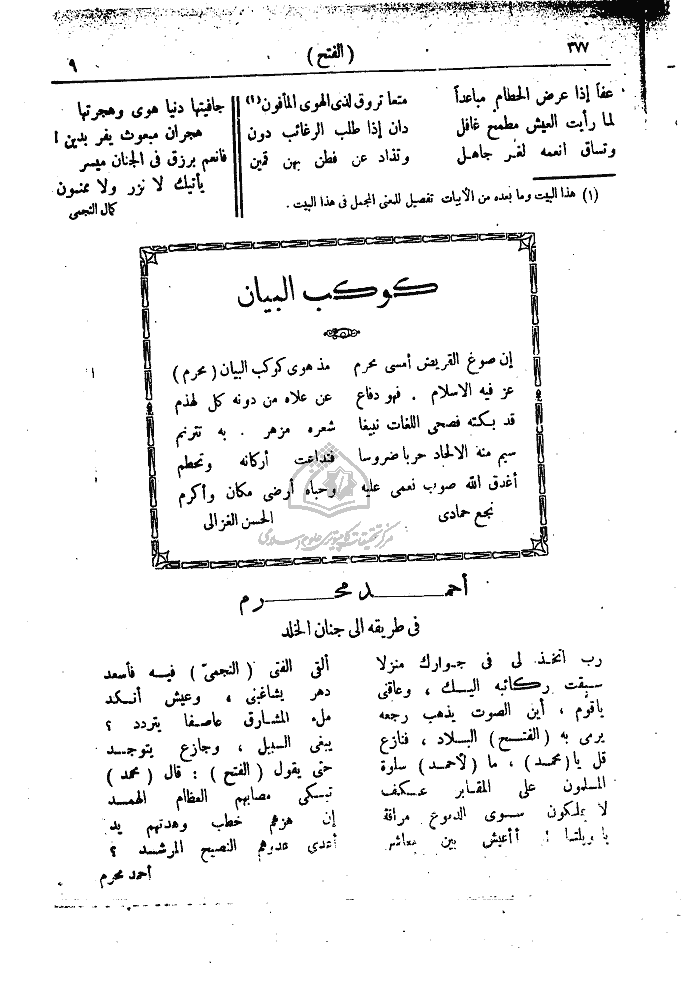 ٣٧٧ ( الفتح ) ٩
عفاً إذا عرض الحطام مباعداً متعا تروق لذى الهوى المأفون (١)
لما رأيت العيش مطمح غافل دان إذا طلب الرغائب دون
وتساق انعمه لغر جاهل وتذاد عن فطن بهن قمين
جافيتها دنيا هوى وهجرتها
هجران مبعوث يفر بدين
فانعم برزق فى الجنان ميسر
يأتيك لا نزر ولا ممنون
كمال النجمى
(١) هذا البيت وما بعده من الأبيات تفصيل للمعنى المجمل فى هذا البيت .
كوكب البيان
إن صوغ القريض أمسى محرم مذ هوى كوكب البيان ( محرم )
عز فيه الاسلام . فهو دفاع عن علاه من دونه كل لهذم
قد بكته فصحى اللغات نبيغا شعره مزهر . به تترنم
سيم منه الالحاد حربا ضروسا فتداعت أركانه وتحطم
أغدق الله صوب نعمى عليه وحباه أرضى مكان وأكرم
نجع حمادى الحسن الغزالى
مركز تحقيقات كامپيوترى علوم اسلامى
أحمــد محــرم
فى طريقه الى جنان الخلد
رب اتخذ لى فى جوارك منزلا ألقى الفتى ( النجمىّ ) فيه فأسعد
سبقت ركائبه اليك ، وعاقنى دهر يشاغبنى ، وعيش أنكد
ياقوم ، أين الصوت يذهب رجعه ملء المشارق عاصفا يتردد ؟
يرمى به ( الفتح ) البلاد ، فنازع يبغى السبيل ، وجازع يتوجد
قل يا ( محمد ) ، ما ( لأحمد ) سلوة حتى يقول ( الفتح ) : قال ( محمد )
المسلمون على المقابر عكف تبكى مصابهم العظام الهمد
لا يملكون سوى الدموع مراقة إن هزهم خطب وهدتهم يد
يا ويلتا ! أأعيش بين معاشر أعدى عدوهم النصيح المرشد ؟
أحمد محرم